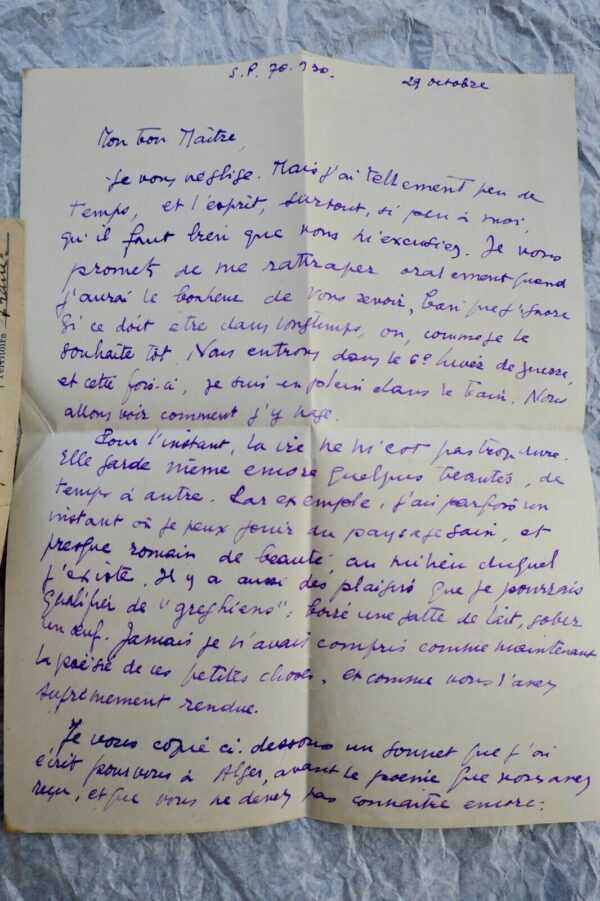 S.P. 70.930.
29 octobre
Mon bon Maître,
Je vous néglige. Mais j'ai tellement peu de
temps, et l'esprit, surtout, si peu à moi,
qu'il faut bien que vous m'excusiez. Je vous
promets de me rattraper oralement quand
j'aurai le bonheur de vous revoir, bien que j'ignore
si ce doit être dans longtemps, ou, comme je le
souhaite tôt. Nous entrons dans le 6e hiver de guerre,
et cette fois-ci, je suis en plein dans le bain. Nous
allons voir comment j'y nage.
Pour l'instant, la vie ne m'est pas trop dure.
Elle garde même encore quelques beautés, de
temps à autre. Par exemple, j'ai parfois un
instant où je peux jouir du paysage sain, et
presque romain de beauté, au milieu duquel
j'existe. Il y a aussi des plaisirs que je pourrais
qualifier de "greghiens": boire une jatte de lait, gober
un œuf. Jamais je n'avais compris comme maintenant
la poésie de ces petites choses, et comme vous l'avez
suprêmement rendue.
Je vous copie ci-dessous un sonnet que j'ai
écrit pour vous à Alger, avant le poème que vous avez
reçu, et que vous ne devez pas connaître encore:
Territoire